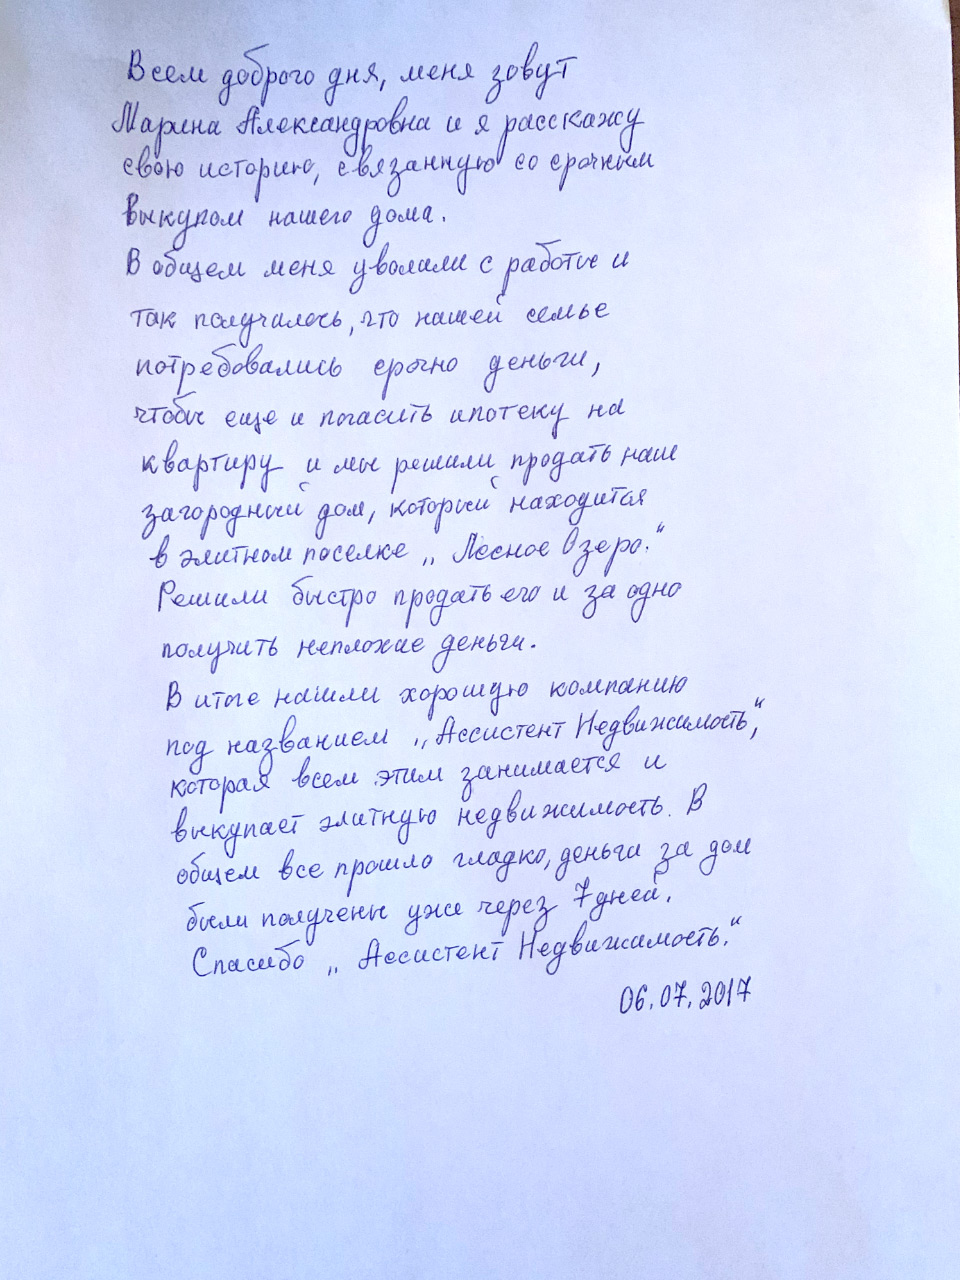 Всем доброго дня, меня зовут
Марина Александровна и я расскажу
свою историю, связанную со срочным
выкупом нашего дома.
В общем меня уволили с работы и
так получилось, что нашей семье
потребовались срочно деньги,
чтобы еще и погасить ипотеку на
квартиру и мы решили продать наш
загородный дом, который находится
в элитном поселке „Лесное Озеро.“
Решили быстро продать его и за одно
получить неплохие деньги.
В итоге нашли хорошую компанию
под названием „Ассистент Недвижимость“,
которая всем этим занимается и
выкупает элитную недвижимость. В
общем все прошло гладко, деньги за дом
были получены уже через 7 дней.
Спасибо „Ассистент Недвижимость.“
06.07.2017